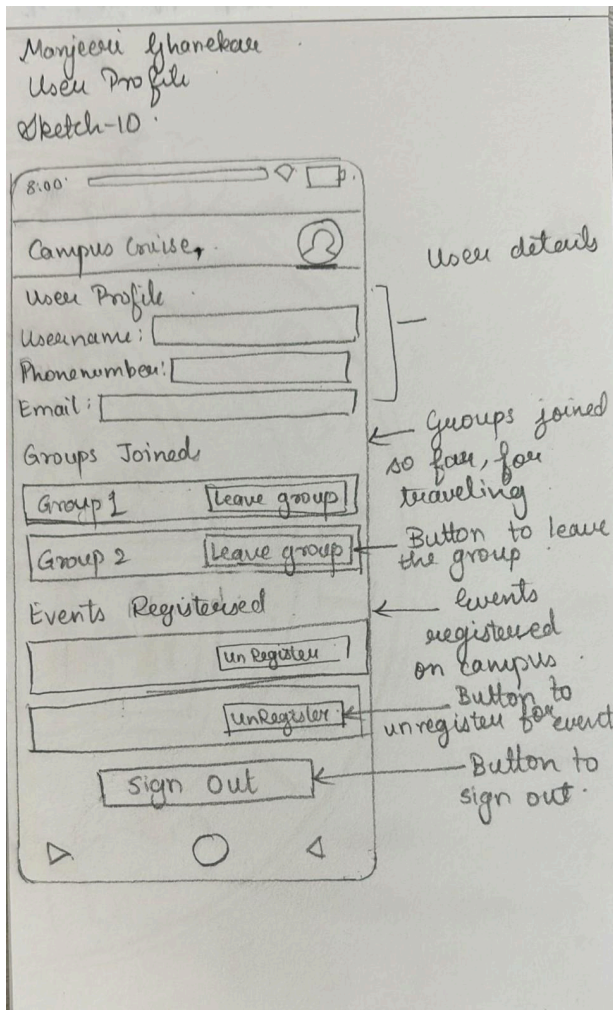 Manjeeri Ghanekar
User Profile
Sketch-10
8:00
Campus Cruise
User Profile
Username:
Phonenumber:
Email:
Groups Joined
Group 1 Leave group
Group 2 Leave group
Events Registered
unRegister
UnRegister
Sign out
User details
Groups joined
so far, for
traveling
Button to leave
the group
Events
registered
on campus
Button to
unregister for event
Button to
sign out.